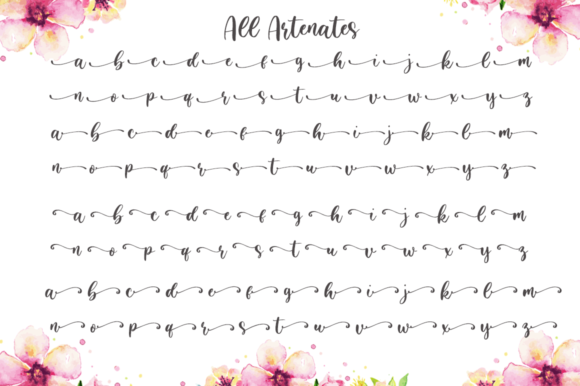 All Artenates
a b c d e f g h i j k l m
n o p q r s t u v w x y z
a b c d e f g h i j k l m
n o p q r s t u v w x y z
a b c d e f g h i j k l m
n o p q r s t u v w x y z
a b c d e f g h i j k l m
n o p q r s t u v w x y z